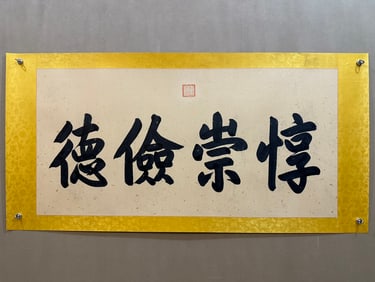 惇崇儉德